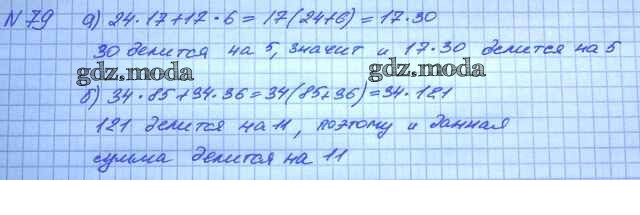 N 79 а) 24·17+17·6=17(24+6)=17·30
30 делится на 5, значит и 17·30 делится на 5
gdz.moda gdz.moda
б) 34·85+34·36=34(85+36)=34·121
121 делится на 11, поэтому и данная
сумма делится на 11